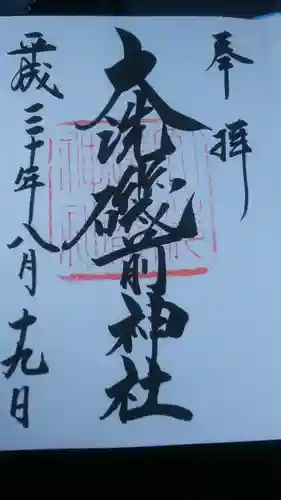 奉拝
大洗磯前神社
平成三十年八月十九日